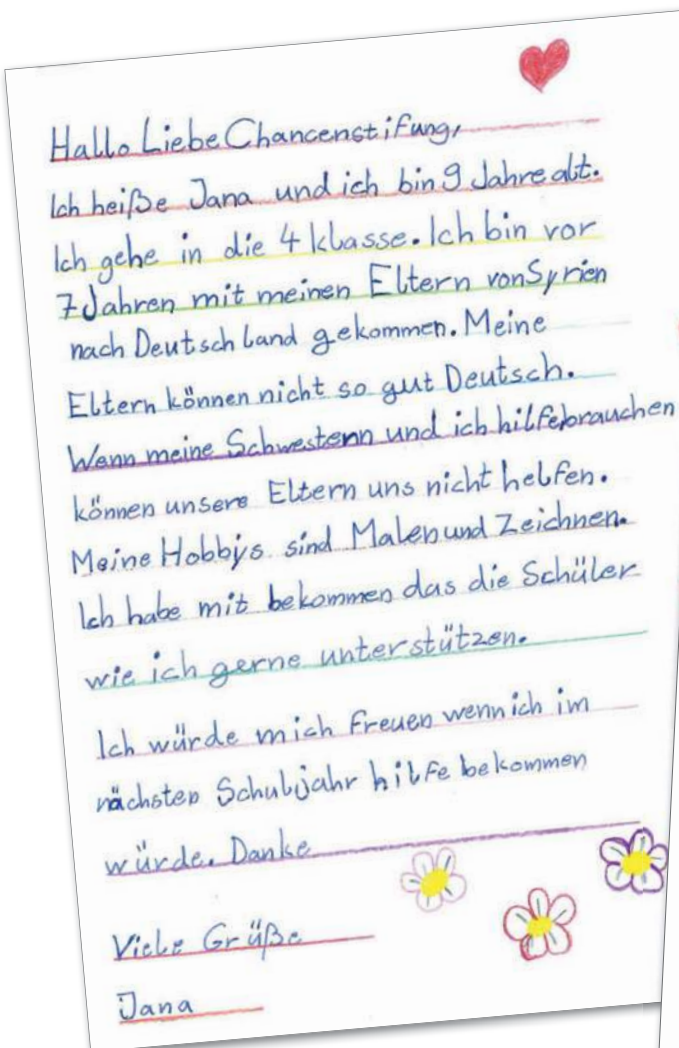 Hallo Liebe Chancenstifung,
Ich heiße Jana und ich bin 9 Jahre alt.
Ich gehe in die 4 klasse. Ich bin vor
7 Jahren mit meinen Eltern von Syrien
nach Deutschland gekommen. Meine
Eltern können nicht so gut Deutsch.
Wenn meine Schwestern und ich hilfe brauchen
können unsere Eltern uns nicht helfen.
Meine Hobbys sind Malen und Zeichnen.
Ich habe mit bekommen das die Schüler
wie ich gerne unterstützen.
Ich würde mich freuen wenn ich im
nächsten Schuljahr hilfe bekommen
würde. Danke
Viele Grüße
Jana